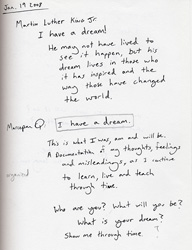 Jan. 19 2008
Martin Luther King Jr.
I have a dream!
He may not have lived to
see it happen, but his
dream lives in those who
it has inspired and the
way those have changed
the world.
Q. I have a dream.
This is what I was, am and will be.
A Documentation of my thoughts, feelings
and misleadings, as I continue
to learn, live and teach
through time.
Who are you? What will you be?
What is your dream?
Show me through time.